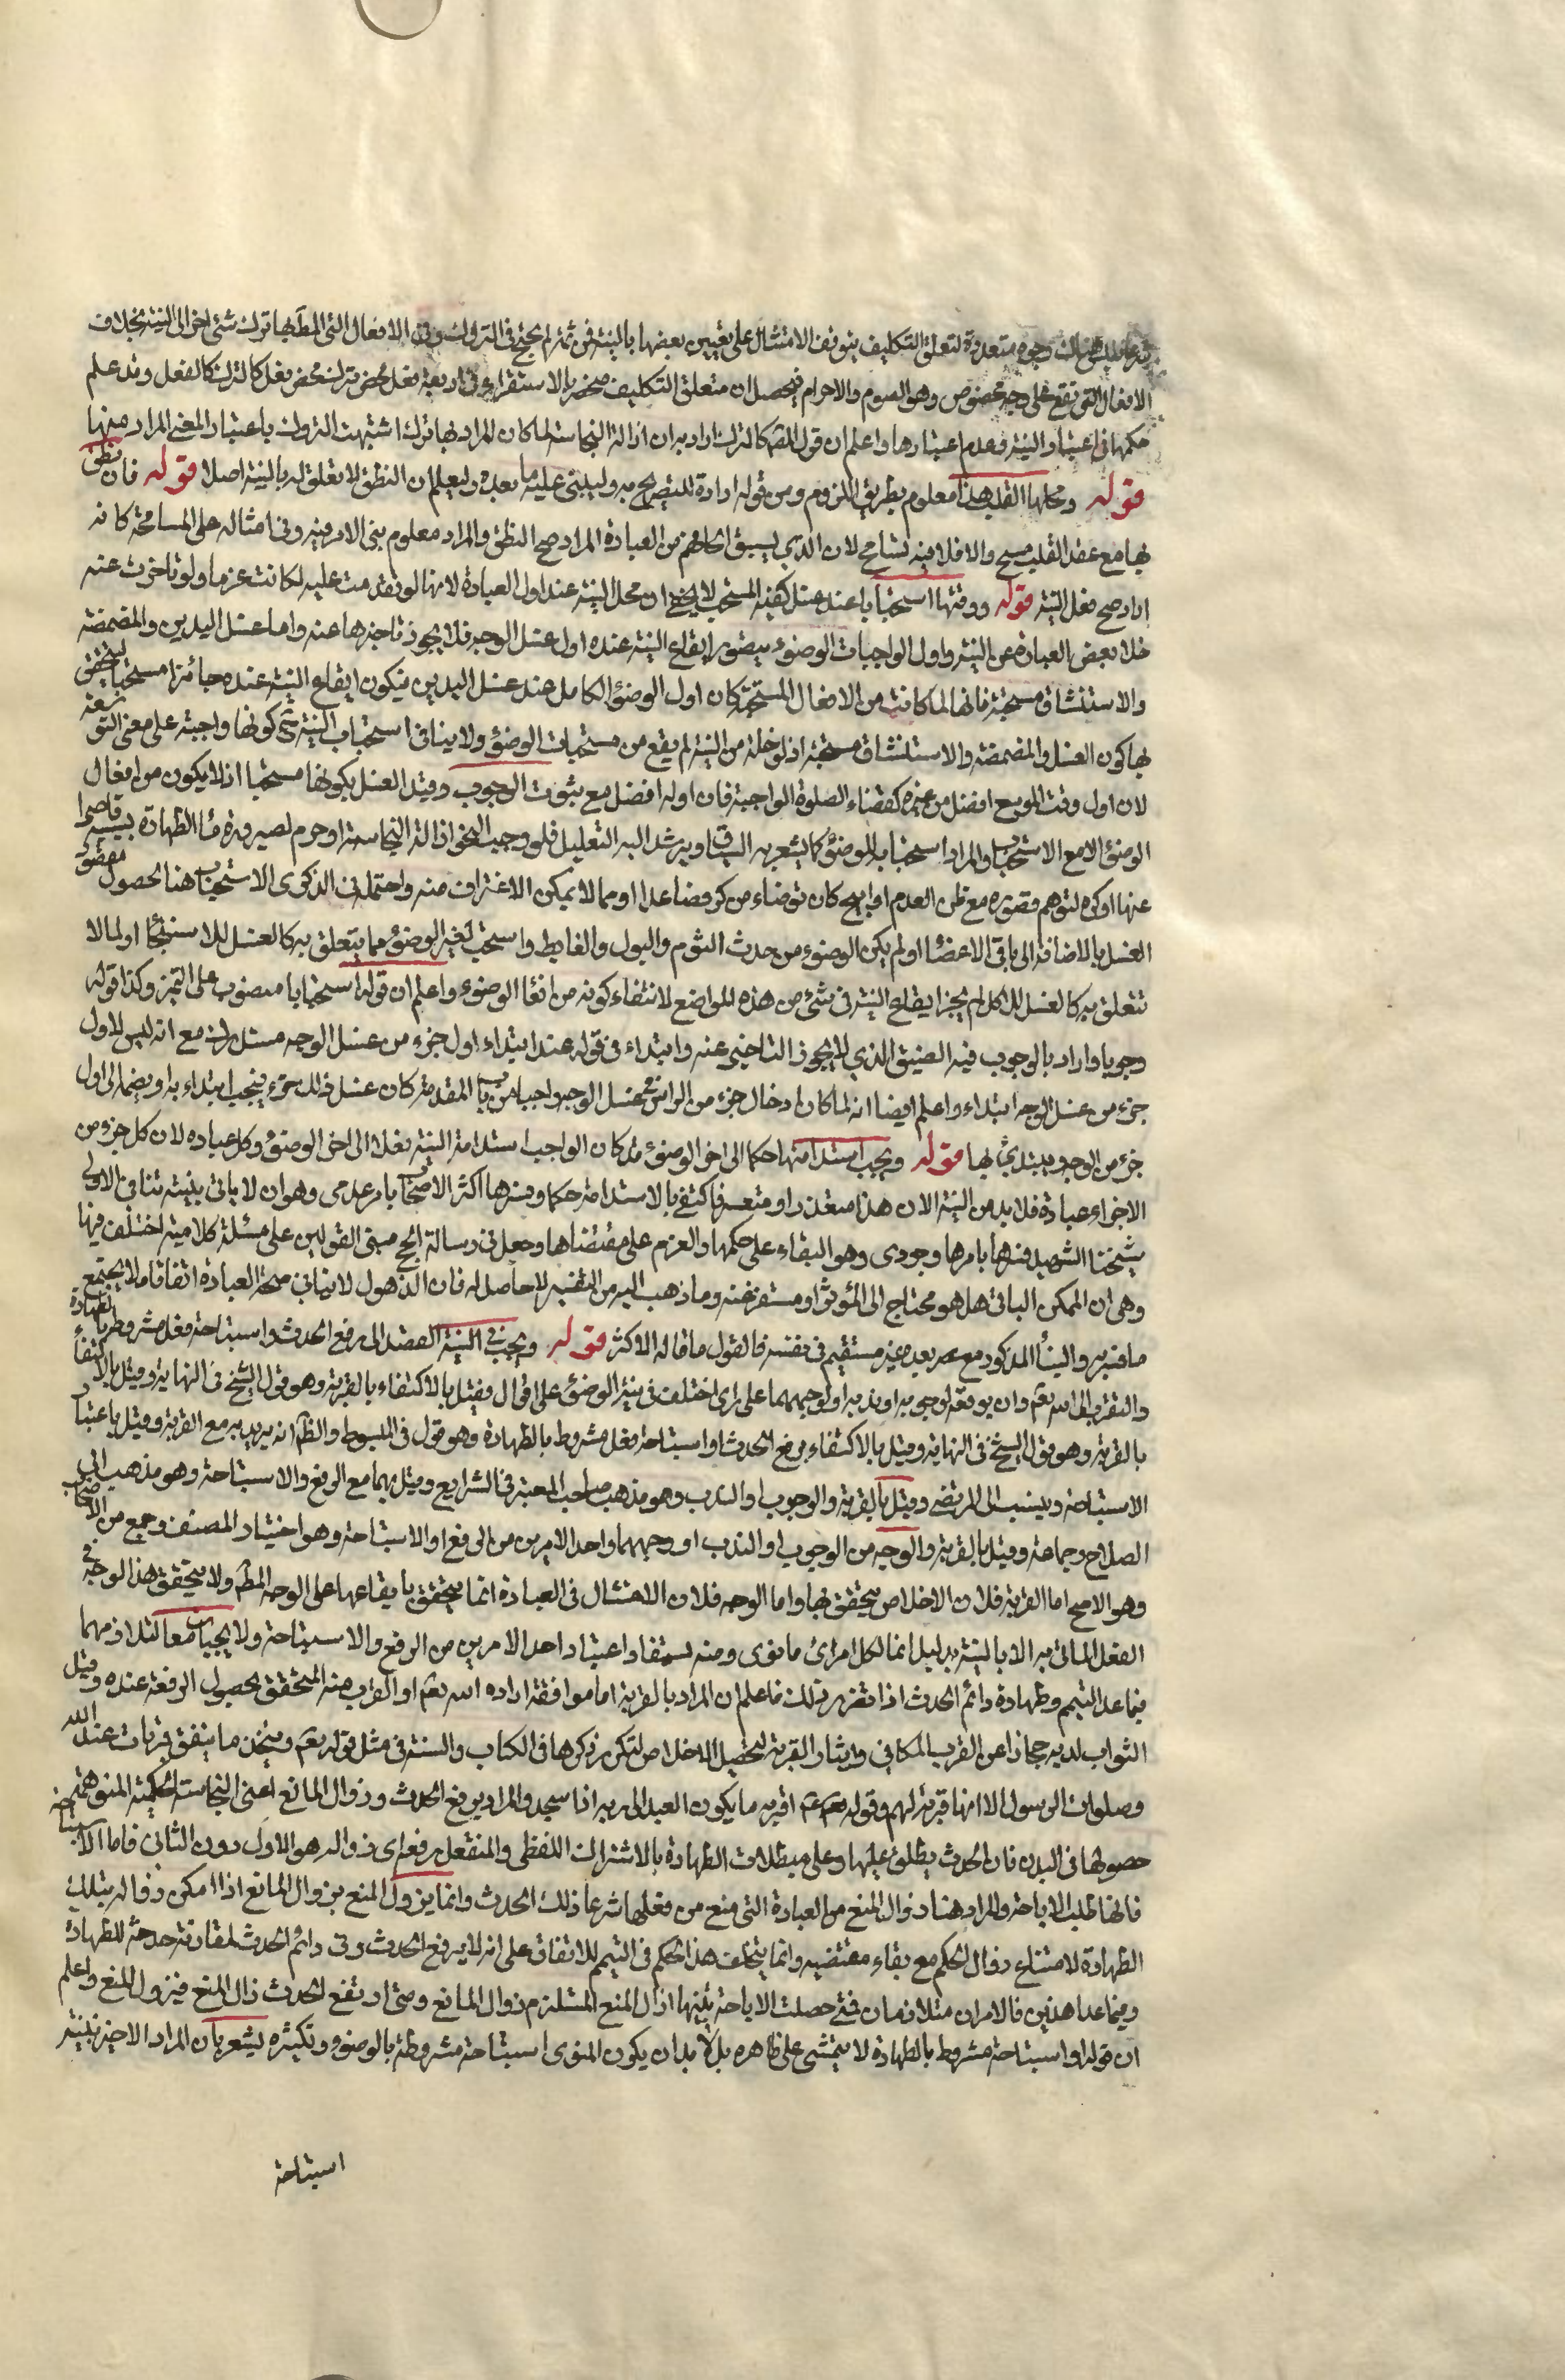 وجوه متعددة لتعلق التكليف يتوقف الامتثال على تعيين بعضها بالنية فمن ثم لم يحتج في التروك وفي الافعال التي المط بها ترك شئ اخر الى النية بخلاف
الافعال التي تقع على وجه مخصوص وهو الصوم والاحرام فيحصل ان متعلق التكليف منحصر بالاستقراء في اربعة فعل محض ترك محض فعل كالترك ترك كالفعل وقد علم
حكمها في اعتبار النية وعدم اعتبارها واعلم ان قول المصه كالترك اراد به ان ازالة النجاسة لما كان المراد بها ترك اشبهت التروك باعتبار المعنى المراد منها
قوله ومحلها القلب هذا معلوم بطريق اللزوم ومن قوله ارادة للتصريح به وليبنى عليه ما بعده وليعلم ان النطق لا تعلق له بالنية اصلا قوله فان نطق
بها مع عقد القلب صح والا فلا فيه تسامح لان الذي يسبق الى الفهم من العبارة المراد صح النطق والمراد معلوم بنى الامر فيه وفي امثاله على المسامحة كانه
اراد صح فعل النية قوله ووقتها استحبابا عند غسل كفيه المستحب لا يخفى ان محل النية عند اول العبادة لانها لو تقدمت عليه لكانت عزما ولو تاخرت عنه
خلا بعض العبادة عن النية واول الواجبات الوضوء يتصور ايقاع النية عنده اول غسل الوجه فلا يجوز تاخيرها عنه واما غسل اليدين والمضمضة
والاستنشاق مستحبة فانها لما كانت من الافعال المستحبة كان اول الوضوء الكامل عند غسل اليدين فيكون ايقاع النية عنده جائزا مستحبا ليتحقق
بها كون الغسل والمضمضة والاستنشاق مستحبة اذ لو خلت من النية لم يقع من مستحبات الوضوء ولا ينافي استحباب النية ح كونها واجبة على معنى التوسعة
لان اول وقت الموسع افضل من غيره كقضاء الصلوة الواجبة فان اوله افضل مع ثبوت الوجوب وقيد الغسل بكونها مستحبا اذ لا يكون من افعال
الوضوء الا مع الاستحباب والمراد استحبابه للوضوء كما يشعر به السياق ويرشد اليه التعليل فلو وجب لنحو ازالة النجاسة او حرم لصيرورة ماء الطهارة بسببه قاصرا
عنها او كره لتوهم قصوره مع ظن العدم او ابيح كان توضاء من كر فصاعدا او مما لا يمكن الاغتراف منه واحتمل في الذكرى الاستحباب هنا لحصول مقصود
الغسل بالاضافة الى باقي الاعضاء او لم يكن الوضوء من حدث النوم والبول والغايط واستحب لغير الوضوء مما يتعلق به كالغسل للاستنجاء او لما لا
تتعلق به كالغسل للاكل لم يجز ايقاع النية في شئ من هذه المواضع لانتفاء كونه من افعال الوضوء واعلم ان قوله استحبابا منصوب على التميز وكذا قوله
وجوبا واراد بالوجوب فيه المضيق الذي لا يجوز التاخير عنه وابتداء في قوله عند ابتداء اول جزء من غسل الوجه مستدرك مع انه ليس لاول
جزء من غسل الوجه ابتداء واعلم ايضا انه لما كان ادخال جزء من الراس في غسل الوجه واجبا من باب المقدمة كان غسل ذلك جزء فيجب ابتداء به او بضمه الى اول
جزء من الوجه ويبتدئ بها قوله ويجب استدامتها حكما الى اخر الوضوء قد كان الواجب استدامة النية فعلا الى اخر الوضوء وكل عباده لان كل جزء من
الاجزاء عبادة فلا بد من النية الا ان هذا متعذر او متعسر فاكتفي بالاستدامة حكما وفسرها اكثر الاصحاب بامر عدمي وهو ان لا ياتي بنية تنافي الاولى
شيخنا الشهيد فسرها بامرها وجودى وهو البقاء على حكمها والعزم على مقتضاها وجعل في رسالة الحج مبنى القولين على مسئلة كلامية اختلف فيها
وهي ان الممكن الباقي هل هو محتاج الى المؤثر او مستغن عنه وما ذهب اليه من التفسير لا حاصل له فان الذهول لا ينافي صحة العبادة اتفاقا ما لا يجتمع
ما فسر به والبناء المذكور مع بعده غير مستقيم في نفسه فالقول ما قاله الاكثر قوله ويجب في النية القصد الى رفع الحدث واستباحة فعل مشروط بالطهارة
والتقرب الى الله تعالى وان يوقعه لوجوبه او ندبه او لوجههما على راى اختلف في نية الوضوء على اقوال فقيل بالاكتفاء بالقربة وهو قول الشيخ في النهاية وقيل بالاكتفاء
بالقربة وهو قول الشيخ في النهاية وقيل بالاكتفاء برفع الحدث او استباحة فعل مشروط بالطهارة وهو قول في المبسوط والظاهر انه يريد به مع القربة وقيل باعتبار
الاستباحة وينسب الى المرتضى وقيل بالقربة والوجوب او الندب وهو مذهب صاحب المعتبر في الشرايع وقيل بهما مع الرفع والاستباحة وهو مذهب ابي
الصلاح وجماعة وقيل بالقربة والوجه من الوجوب او الندب او وجههما واحد الامرين من الرفع او الاستباحة وهو اختيار المصنف وجمع من الاصحاب
وهو الاصح اما القربة فلان الاخلاص يتحقق بها واما الوجه فلان الامتثال في العبادة انما يتحقق بايقاعها على الوجه المط ولا يتحقق هذا الوجه في
الفعل الماتى به الا بالنية بدليل انما لكل امرئ ما نوى ومنه يستفاد اعتبار احد الامرين من الرفع والاستباحة ولا يجبان معا لتلازمهما
فيما عدا التيمم وطهارة دائم الحدث اذا تقرر ذلك فاعلم ان المراد بالقربة اما موافقة اراده الله تعالى او القرب منه المتحقق بحصول الرفعة عنده ونيل
الثواب لديه مجازا عن القرب المكاني وايثار القربة لتحصيل الاخلاص لتكرر ذكرها في الكتاب والسنة في مثل قوله تعالى ويتخذ ما ينفق قربات عند الله
وصلوات الرسول الا انها قربة لهم وقوله اقرب ما يكون العبد الى ربه اذا سجد والمراد برفع الحدث وزوال المانع اعنى النجاسة الحكمية المتوهمة
حصولها في البدن فان الحدث يطلق عليها وعلى مبطلات الطهارة بالاشتراك اللفظى والمنفعل برفعه اى زواله هو الاول دون الثاني فاما الاستباحة
فانها طلب الاباحة والمراد هنا زوال المنع من العبادة التي منع من فعلها شرعا ذلك الحدث وانما يزول المنع بزوال المانع اذا امكن زواله بتلك
الطهارة لامتناع زوال الحكم مع بقاء مقتضيه وانما يتخلف هذا الحكم في التيمم للاتفاق على انه لا يرفع الحدث وفي دائم الحدث لمقارنة حدثه للطهارة
وفيما عدا هذين فالامران متلازمان فمتى حصلت الاباحة بنيتها ازال المنع المستلزم زوال المانع ومتى ارتفع الحدث زال المنع فيزول المنع واعلم
ان قوله او استباحة مشروط بالطهارة لا يتمشى على ظاهره بل لا بد ان يكون المنوى استباحة مشروطة بالوضوء وتكثيره يشعر بان المراد الاجتزاء بنية
استباحة